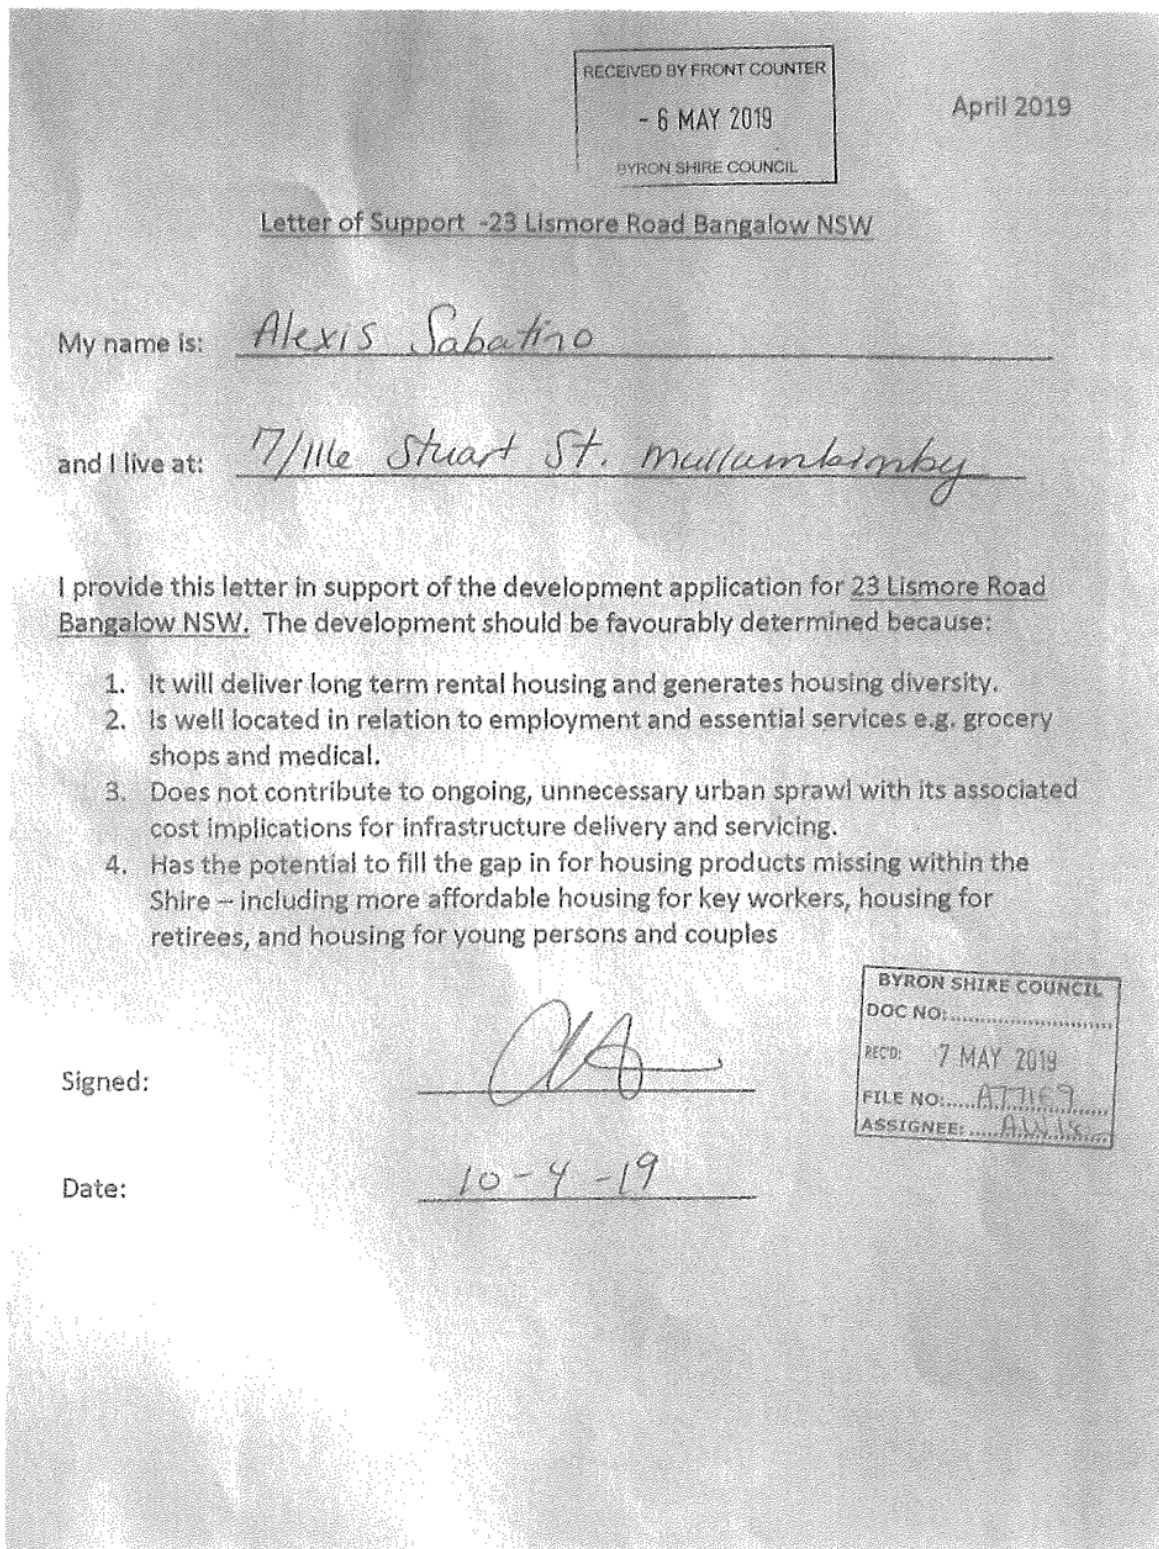 RECEIVED BY FRONT COUNTER
- 6 MAY 2019
BYRON SHIRE COUNCIL
April 2019
Letter of Support -23 Lismore Road Bangalow NSW
My name is: Alexis Sabatino
and I live at: 7/116 Stuart St. Mullumbimby
I provide this letter in support of the development application for 23 Lismore Road
Bangalow NSW. The development should be favourably determined because:
1. It will deliver long term rental housing and generates housing diversity.
2. Is well located in relation to employment and essential services e.g. grocery
shops and medical.
3. Does not contribute to ongoing, unnecessary urban sprawl with its associated
cost implications for infrastructure delivery and servicing.
4. Has the potential to fill the gap in for housing products missing within the
Shire – including more affordable housing for key workers, housing for
retirees, and housing for young persons and couples
BYRON SHIRE COUNCIL
DOC NO:
RECD: 7 MAY 2019
FILE NO:
ASSIGNEE:
Signed:
Date: 10-4-19